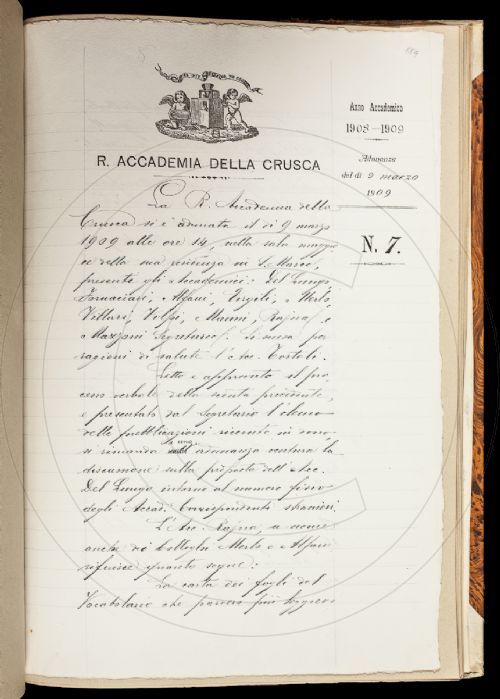 R. ACCADEMIA DELLA CRUSCA
Anno Accademico
1908-1909
Adunanza
del dì 9 marzo
1909
N. 7.
La R. Accademia della
Crusca si è adunata il dì 9 marzo
1909 alle ore 14, nella sala maggio
re della sua residenza in S. Marco,
presenti gli Accademici: Del Lungo,
Fornaciari, Alfani, Vergili, Merlo,
Villari, Volpi, Marini, Rajna, e
Mazzoni Segretario. Si scusa per
ragioni di salute l'Acc. Tortoli.
Letto e approvato il pro
cesso verbale della seduta precedente,
e presentato dal Segretario l'elenco
delle pubblicazioni ricevute in dono,
si rimanda a una adunanza ventura la
discussione sulla proposta dell'Acc.
Del Lungo intorno al numero fisso
degli Accad. Corrispondenti stranieri.
L'Acc. Rajna, a nome
anche dei Colleghi Merlo e Alfani
riferisce quanto segue:
La carta dei fogli del
Vocabolario che parrero più leggieri